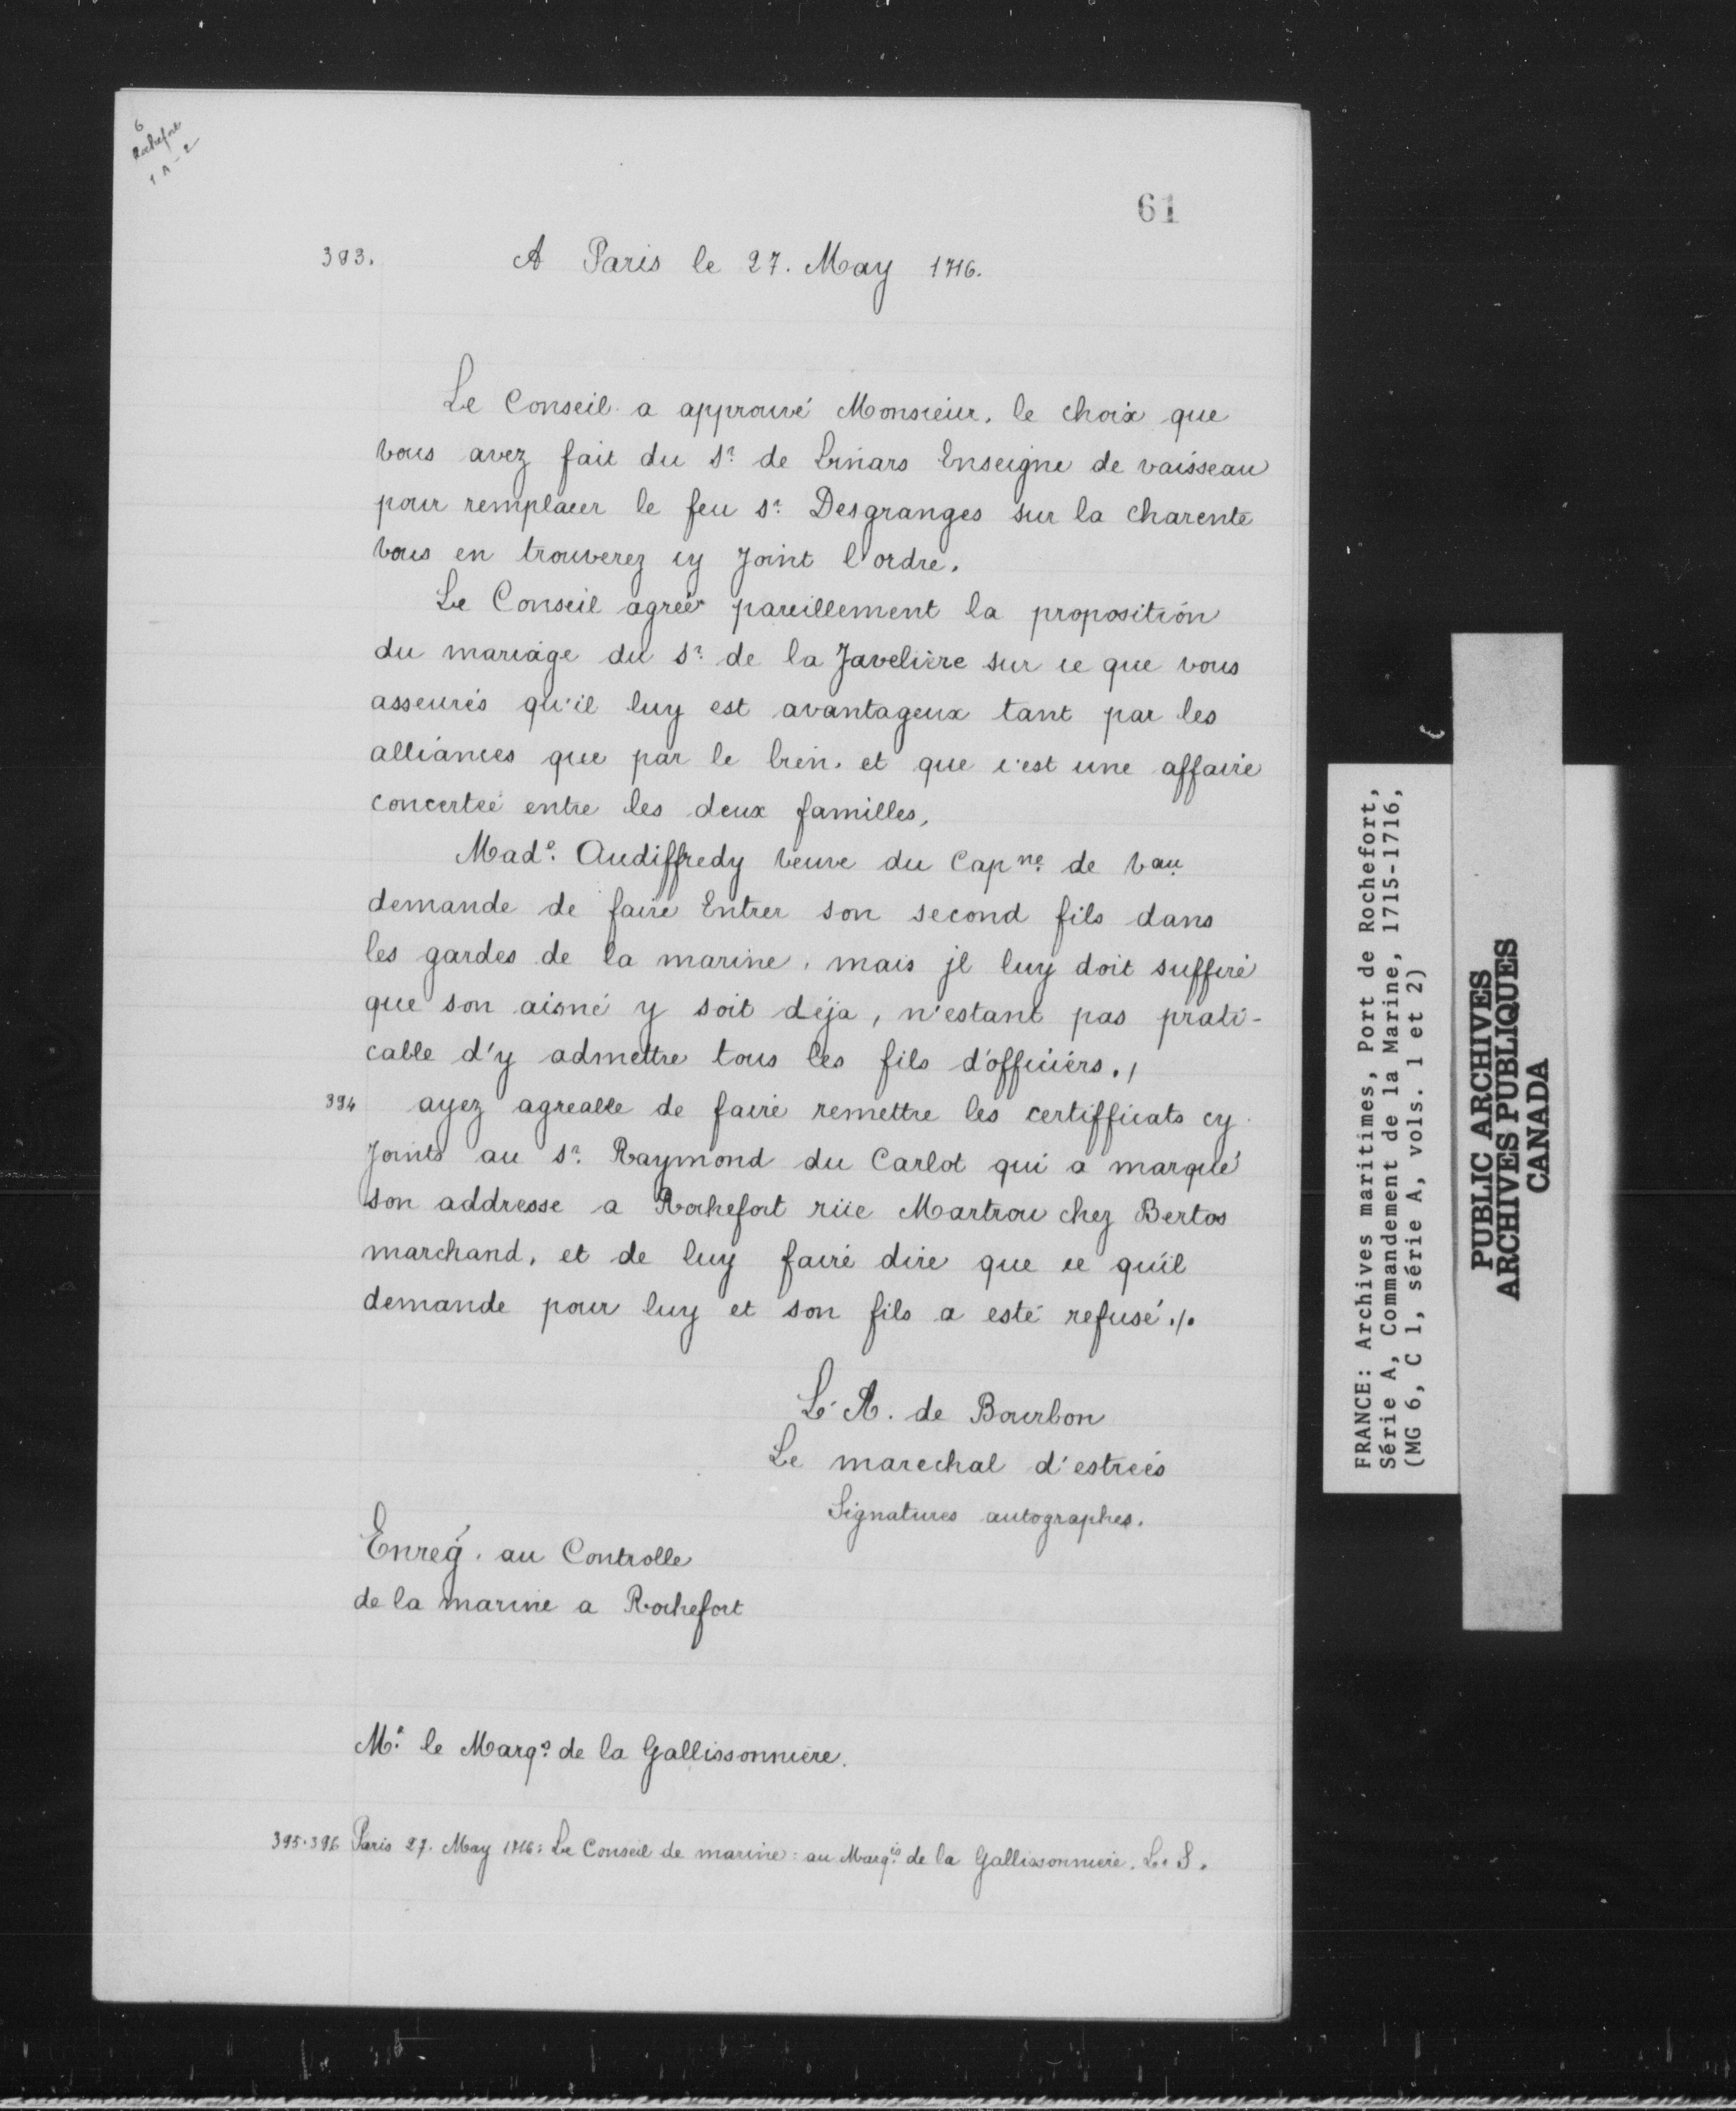 6
Rochefort
1 A-2
61
393. A Paris le 27. May 1716.
Le Conseil a approuvé Monsieur. le choix que
vous avez fait du Sr. de Linars Enseigne de vaisseau
pour remplacer le feu Sr. Desgranges sur la charente
vous en trouverez cy Joint l'ordre.
Le Conseil agréé pareillement la proposition
du mariage du Sr. de la Javelière sur ce que vous
asseurés qu'il luy est avantageux tant par les
alliances que par le bien. et que c'est une affaire
concertée entre les deux familles,
Made. Audiffredy veuve du Capne. de Vau.
demande de faire Entrer son second fils dans
les gardes de la marine. mais jl luy doit suffire
que son aisné y soit déja, n'estant pas prati-
cable d'y admettre tous les fils d'officiers./
394 ayez agreable de faire remettre les certifficats cy
Joints au Sr. Raymond du Carlot qui a marqué
son addresse a Rochefort rüe Martrou chez Bertos
marchand, et de luy faire dire que ce qu'il
demande pour luy et son fils a esté refusé ./.
L. A. de Bourbon
Le marechal d'estrées
Signatures autographes.
Enreg. au Controlle
de la marine a Rochefort
Mr. le Margs. de la Gallissonnière.
395.396 Paris 27. May 1716: Le Conseil de marine: au Marqis. de la Gallissonniere. L. S.
FRANCE: Archives maritimes, Port de Rochefort,
Série A, Commandement de la Marine, 1715-1716,
(MG 6, C 1, série A, vols. 1 et 2)
PUBLIC ARCHIVES
ARCHIVES PUBLIQUES
CANADA